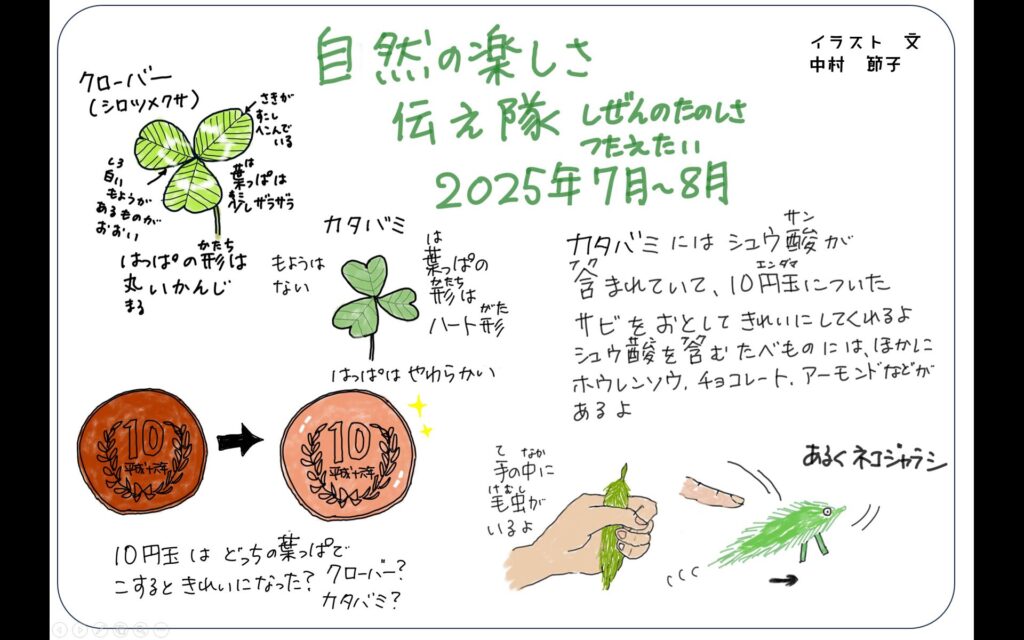 自然の楽しさ
伝え隊 しぜんのたのしさ
つたえたい
2025年7月~8月
イラスト 文
中村 節子
クローバー
(シロツメクサ)
さきが
すこし
へこんで
いる
しろ
白い
もようが
あるものが
おおい
は
葉っぱは
すこ
少しザラザラ
かたち
はっぱの形は
丸いかんじ
まる
カタバミ
もようは
ない
は
葉っぱの
かたち
形は
がた
ハート形
はっぱはやわらかい
サン
カタバミにはシュウ酸が
フク エンダマ
含まれていて、10円玉についた
サビをおとしてきれいにしてくれるよ
サン フク
シュウ酸を含むたべものには、ほかに
ホウレンソウ、チョコレート、アーモンドなどが
あるよ
10
平成十六年
10
平成十六年
は
10円玉はどっちの葉っぱで
こするときれいになった?
クローバー?
カタバミ?
て なか
手の中に
けむし
毛虫が
いるよ
あるくネコジャラシ